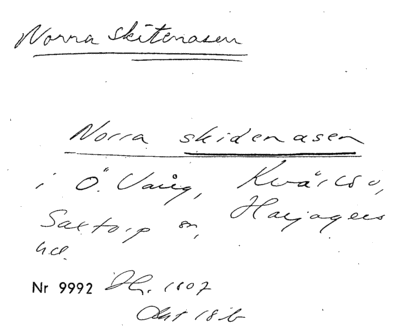 Norra skitenasen
Norra skidenasen
i Ö. Vång, Kvärlöv,
Saxtorp sn, Harjagers
hd.
Nr 9992 Dhr. 1807
Akt 18b